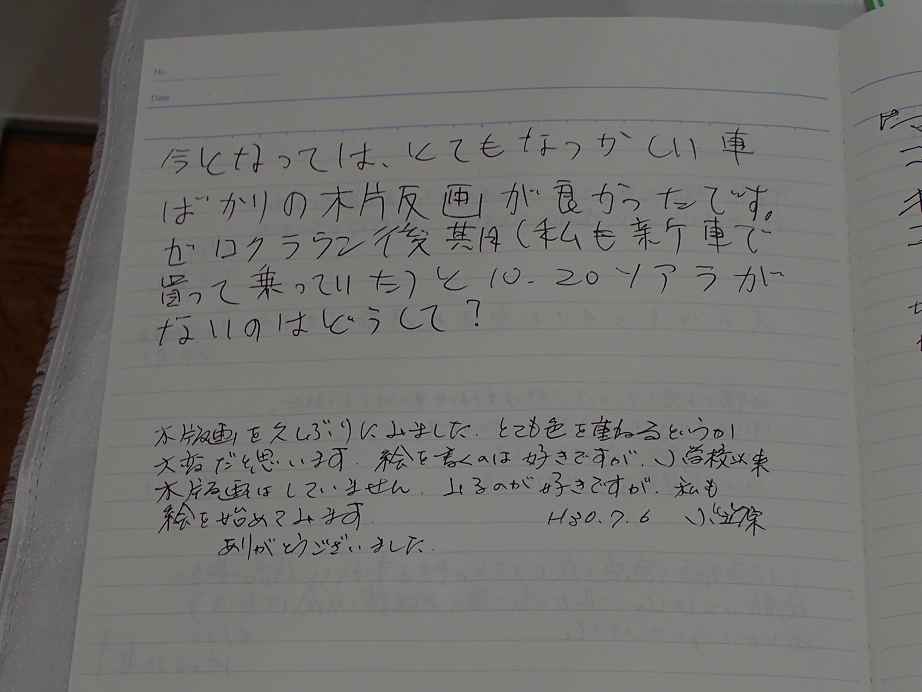 No.
Date
今となっては、とてもなつかしい車
ばかりの木片反画が良かったです。
ゼロクラウン後期(私も新ケ車で
買って乗っていた)と10.20ソアラが
ないのはどうして?
木版画を久しぶりにみました。とても色を重ねるというか
大変だと思います。絵を書くのは好きですが、小学校以来
木版画はしていません。みるのが好きですが、私も
絵を始めてみます。
H30.7.6
ありがとうございました。